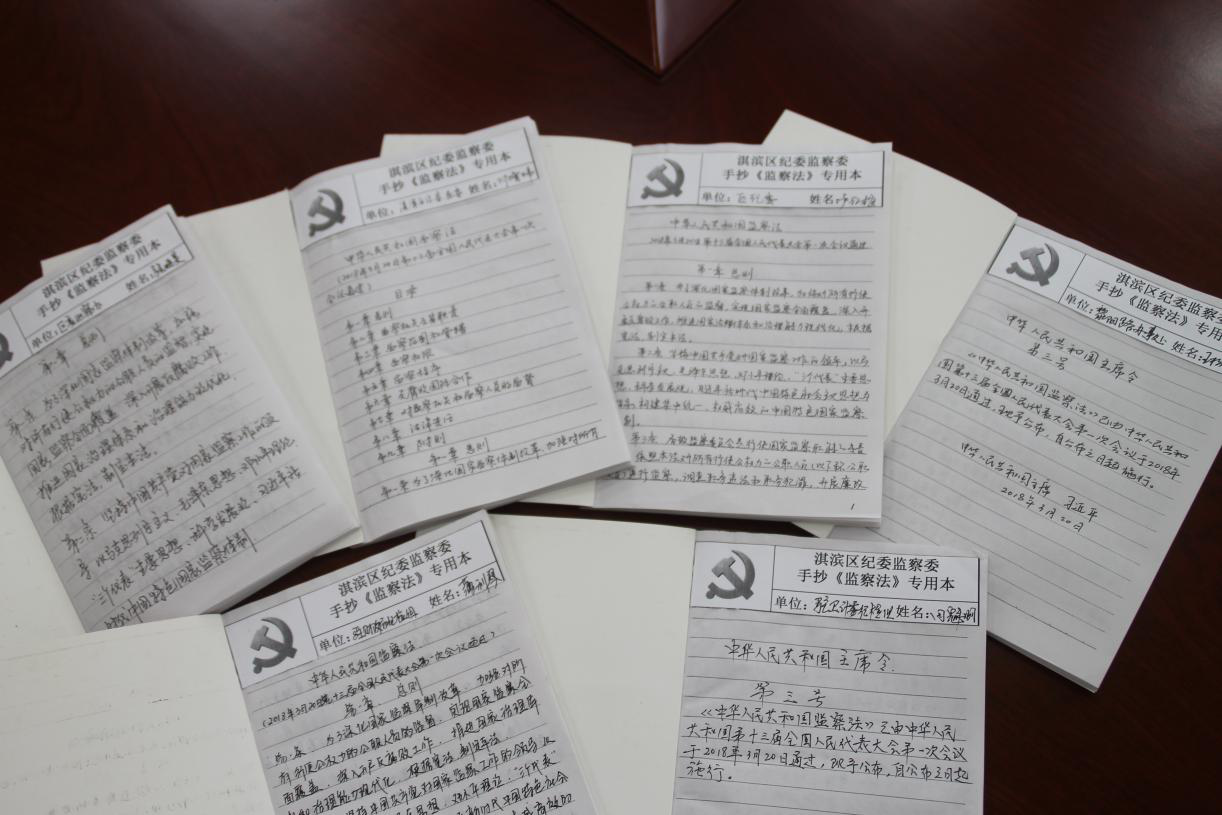 淇滨区纪委监察委
手抄《监察法》专用本
单位： 姓名：
第一章 总则
第一条 为了深化国家监察体制改革，加强
对所有行使公权力的公职人员的监督，实现
国家监察全面覆盖，深入开展反腐败工作，
推进国家治理体系和治理能力现代化，
根据宪法，制定本法。
第二条 坚持中国共产党对国家监察工作的领
导，以马克思列宁主义、毛泽东思想、邓小平理论、
“三个代表”重要思想、科学发展观、习近平新
时代中国特色 国家监察体制
淇滨区纪委监察委
手抄《监察法》专用本
单位： 姓名：
中华人民共和国监察法
（2018年3月20日第十三届全国人民代表大会第一次
会议通过）
目录
第一章 总则
第二章 监察机关及其职责
第三章 监察范围和管辖
第四章 监察权限
第五章 监察程序
第六章 反腐败国际合作
第七章 对监察机关和监察人员的监督
第八章 法律责任
第九章 附则
第一章 总则
第一条 为了深化国家监察体制改革，加强对所有
淇滨区纪委监察委
手抄《监察法》专用本
单位：区纪委 姓名：
中华人民共和国监察法
2018年3月20日第十三届全国人民代表大会第一次会议通过
第一章 总则
第一条 为了深化国家监察体制改革，加强对所有行使
公权力的公职人员的监督，实现国家监察全面覆盖，深入开
展反腐败工作，推进国家治理体系和治理能力现代化，根据
宪法，制定本法。
第二条 坚持中国共产党对国家监察工作的领导，以马
克思列宁主义、毛泽东思想、邓小平理论、“三个代表”重要思
想、科学发展观、习近平新时代中国特色社会主义思想为
指导，构建集中统一、权威高效的中国特色国家监察
体制。
第三条 各级监察委员会是行使国家监察职能的专责
机关，依照本法对所有行使公权力的公职人员（以下称公职
人员）进行监察，调查职务违法和职务犯罪，开展廉政
1
淇滨区纪委监察委
手抄《监察法》专用本
单位：黎阳路办事处 姓名：
中华人民共和国主席令
第三号
《中华人民共和国监察法》已由中华人民共和
国第十三届全国人民代表大会第一次会议于2018年
3月20日通过，现予公布，自公布之日起施行。
中华人民共和国主席 习近平
2018年3月20日
淇滨区纪委监察委
手抄《监察法》专用本
单位： 姓名：
中华人民共和国监察法
（2018年3月20日第十三届全国人民代表大会第一次会议通过）
第一章 总则
第一条 为了深化国家监察体制改革，加强对所
有行使公权力的公职人员的监督，实现国家监察全
面覆盖，深入开展反腐败工作，推进国家治理体
系和治理能力现代化，根据宪法，制定本法
坚持中国共产党对国家监察工作的领导，以
邓小平理论、“三个代表”
新时代中国特色社会
淇滨区纪委监察委
手抄《监察法》专用本
单位：驻卫计委纪检组 姓名：
中华人民共和国主席令
第三号
《中华人民共和国监察法》已由中华人民
共和国第十三届全国人民代表大会第一次会议
于2018年3月20日通过，现予公布，自公布之日起
施行。